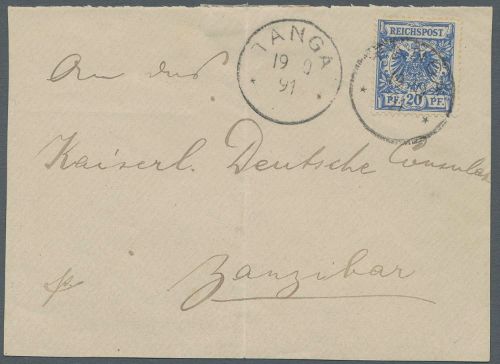 TANGA
19 9
91
REICHSPOST
PF. 20 PF.
An das
Kaiserl. Deutsche Consulat
Zanzibar